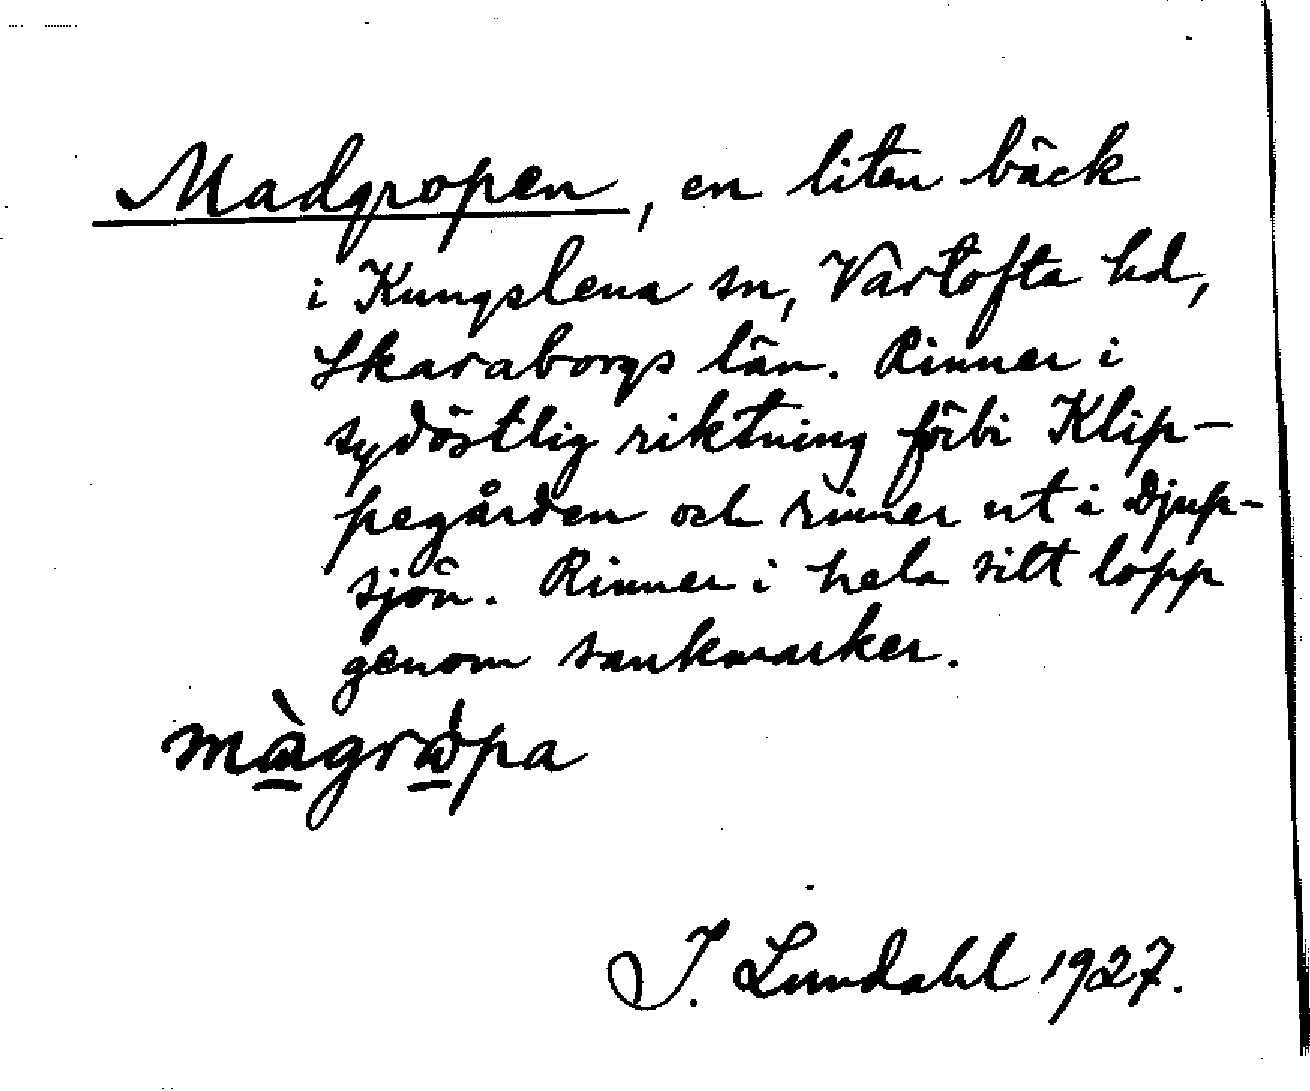 Madgropen, en liten bäck
i Kungslena sn, Vartofta hd,
Skaraborgs län. Rinner i
sydöstlig riktning förbi Klip-
pegården och rinner ut i Djup-
sjön. Rinner i hela sitt lopp
genom sankmarker.
màgråpa
J. Lundahl 1927.